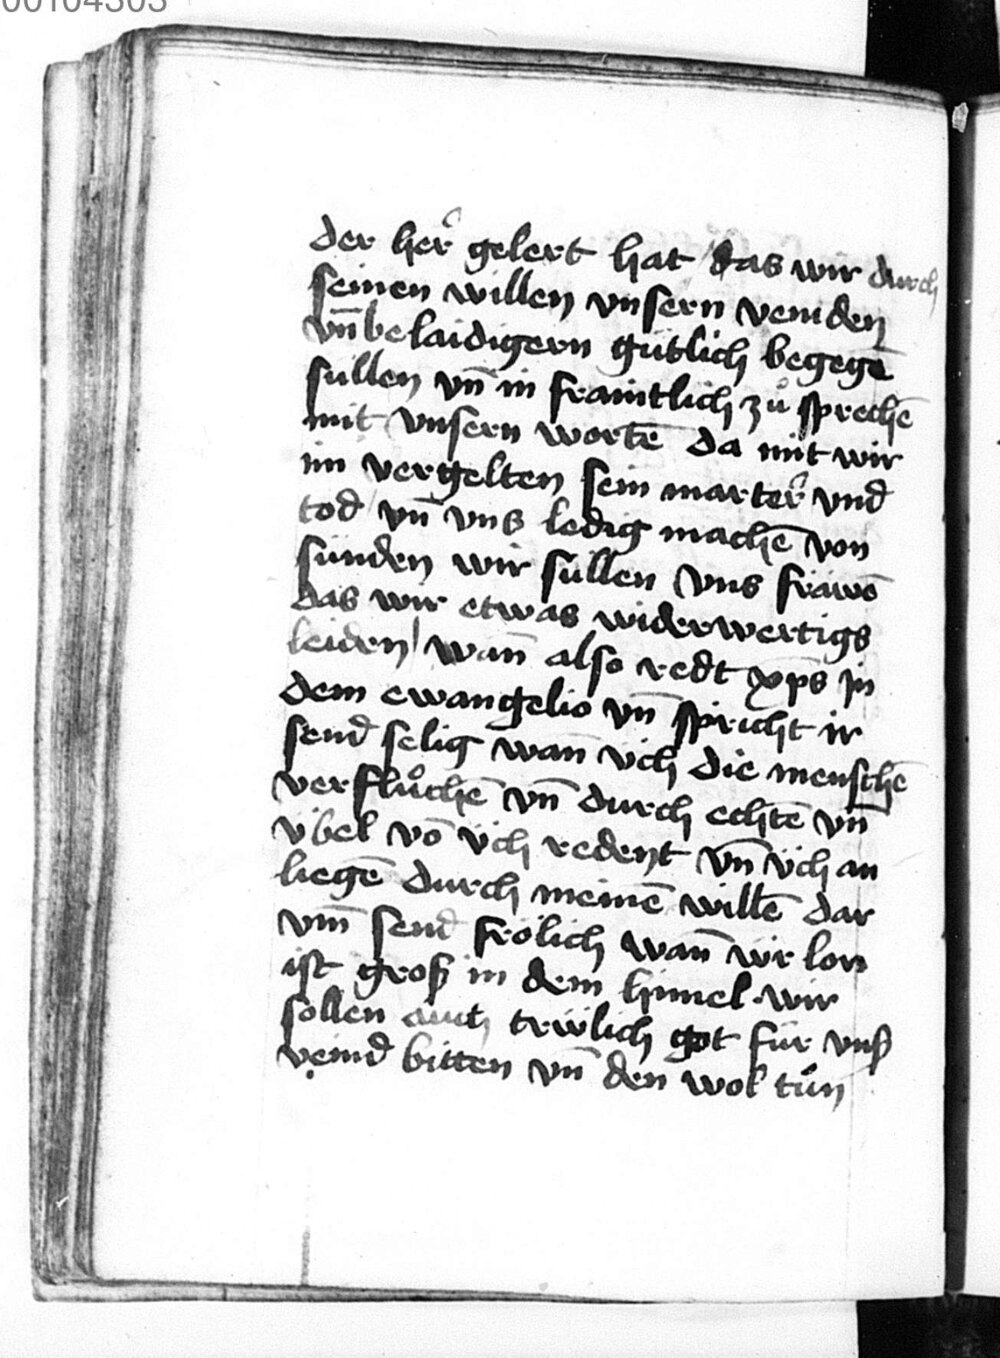 00104303
der her᷑ gelert hat / das wir durch
seinen willen vnsern veinden
vn̄ belaidigern gütlich begegē
sullen vn̄ in fraintlich zuͦ sprechē
mit vnsern wortē da mit wir
im vergelten sein marter᷑ vnd
tod / vn̄ vns ledig machē von
sünden wir süllen vns fräwē
das wir etwas widerwertigs
leiden / wan̄ also redt xp̄s in
dem ewangelio vn̄ spricht ir
send selig wan̄ üch die menschē
verfluͦchē vn̄ durch echtē vn̄
übel vō üch redent vn̄ üch an
liegē durch meinē willē dar
vm̄ send frölich wan̄ üwr lon
ist groß in dem himel . wir
söllen auch trwlich got für vnß
veind bitten vn̄ den wol tuͦn